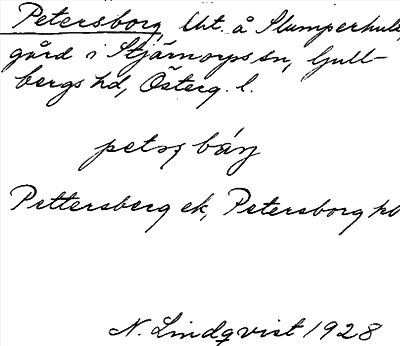 Petersborg, lht. å Slumperhult,
gård i Stjärnorps sn, Gull-
bergs hd, Österg. l.
petəṣ bárj
Pettersberg ek, Petersborg hd
N. Lindqvist 1928